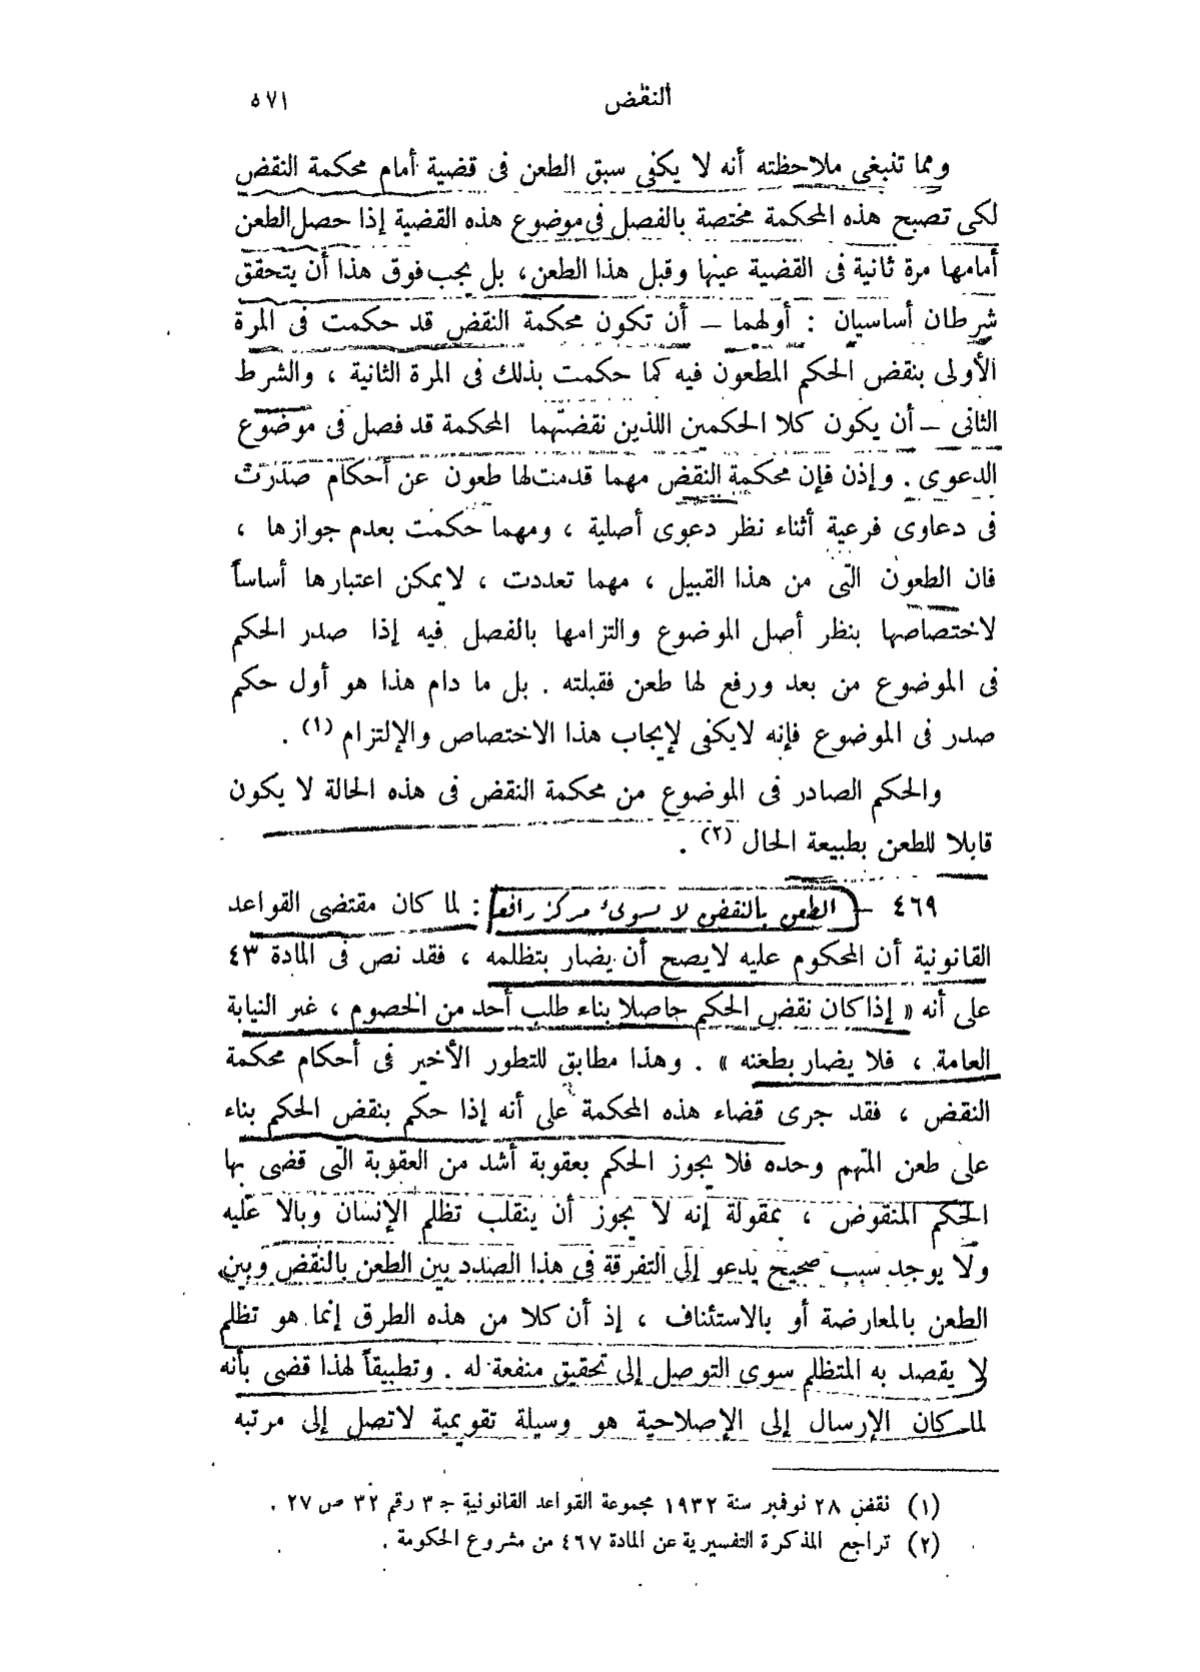 النقض
٥٧١
ومما تنبغى ملاحظته أنه لا يكفى سبق الطعن فى قضية أمام محكمة النقض
لكى تصبح هذه المحكمة مختصة بالفصل فى موضوع هذه القضية إذا حصل الطعن
أمامها مرة ثانية فى القضية عينها وقبل هذا الطعن، بل يجب فوق هذا أن يتحقق
شرطان أساسيان : أولهما – أن تكون محكمة النقض قد حكمت فى المرة
الأولى بنقض الحكم المطعون فيه كما حكمت بذلك فى المرة الثانية ، والشرط
الثانى – أن يكون كلا الحكمين اللذين نقضتهما المحكمة قد فصل فى موضوع
الدعوى . وإذن فإن محكمة النقض مهما قدمت لها طعون عن أحكام صدرت
فى دعاوى فرعية أثناء نظر دعوى أصلية ، ومهما حكمت بعدم جوازها ،
فان الطعون التى من هذا القبيل ، مهما تعددت ، لا يمكن اعتبارها أساساً
لاختصاصها بنظر أصل الموضوع والتزامها بالفصل فيه إذا صدر الحكم
فى الموضوع من بعد ورفع لها طعن فقبلته . بل ما دام هذا هو أول حكم
صدر فى الموضوع فإنه لا يكفى لإيجاب هذا الاختصاص والإلتزام (١) .
والحكم الصادر فى الموضوع من محكمة النقض فى هذه الحالة لا يكون
قابلا للطعن بطبيعة الحال (٢) .
٤٦٩ – الطعن بالنقض لا يسوىء مركز رافعه : لما كان مقتضى القواعد
القانونية أن المحكوم عليه لا يصح أن يضار بتظلمه ، فقد نص فى المادة ٤٣
على أنه « إذا كان نقض الحكم حاصلا بناء طلب أحد من الخصوم ، غير النيابة
العامة ، فلا يضار بطعنه » . وهذا مطابق للتطور الأخير فى أحكام محكمة
النقض ، فقد جرى قضاء هذه المحكمة على أنه إذا حكم بنقض الحكم بناء
على طعن المتهم وحده فلا يجوز الحكم بعقوبة أشد من العقوبة التى قضى بها
الحكم المنقوض ، بمقولة إنه لا يجوز أن ينقلب تظلم الإنسان وبالا عليه
ولا يوجد سبب صحيح يدعو إلى التفرقة فى هذا الصدد بين الطعن بالنقض وبين
الطعن بالمعارضة أو بالاستئناف ، إذ أن كلا من هذه الطرق إنما هو تظلم
لا يقصد به المتظلم سوى التوصل إلى تحقيق منفعة له . وتطبيقاً لهذا قضى بأنه
لما كان الإرسال إلى الإصلاحية هو وسيلة تقويمية لا تصل إلى مرتبه
(١) نقض ٢٨ نوفمبر سنة ١٩٣٢ مجموعة القواعد القانونية ج ٣ رقم ٣٢ ص ٢٧ .
(٢) تراجع المذكرة التفسيرية عن المادة ٤٦٧ من مشروع الحكومة .